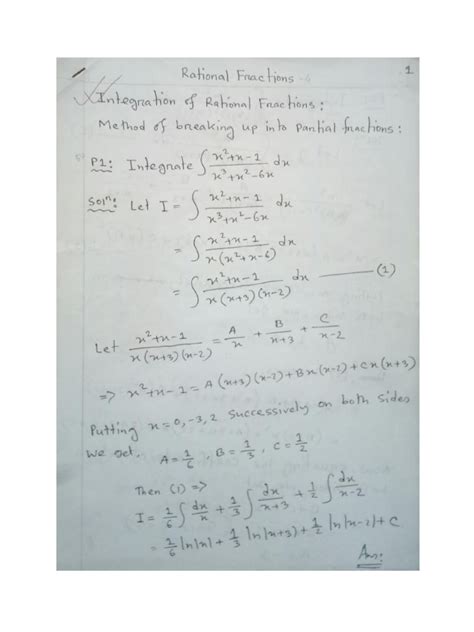 Rational Fractions
1
Integration of Rational Fractions:
Method of breaking up into Partial fractions:
P1: Integrate ∫ (x²+x-1)/(x³+x²-6x) dx
Solⁿ: Let I = ∫ (x²+x-1)/(x³+x²-6x) dx
= ∫ (x²+x-1)/(x(x²+x-6)) dx
= ∫ (x²+x-1)/(x(x+3)(x-2)) dx ——— (1)
Let (x²+x-1)/(x(x+3)(x-2)) = A/x + B/(x+3) + C/(x-2)
=> x²+x-1 = A(x+3)(x-2)+Bx(x-2)+Cx(x+3)
Putting x=0,-3,2 Successively on both sides
we get, A=1/6, B=1/3, C=1/2
Then (1) =>
I = 1/6 ∫ dx/x + 1/3 ∫ dx/(x+3) + 1/2 ∫ dx/(x-2)
= 1/6 ln|x| + 1/3 ln|x+3| + 1/2 ln|x-2| + C
Ans: